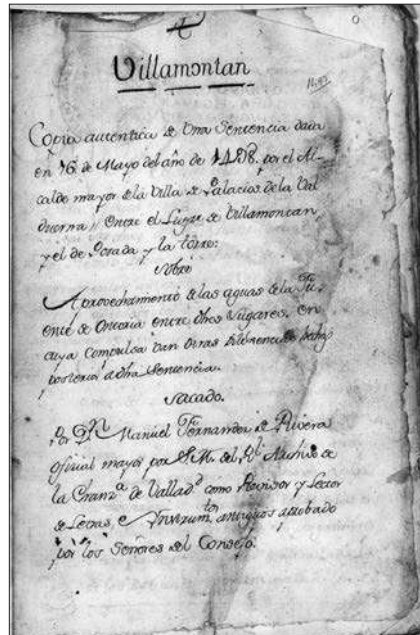 Villamontan
Copia autentica de Una Sentencia dada
en 16 de Mayo del año de 1498. por el Al-
calde mayor de la Villa de Palacios de la Val
duerna, entre el Lugar de Villamontan,
y el de Posada y la torre:
sobre
Aprovechamiento de las aguas de la Fu-
ente de entre dhos Lugares, en
cuya compulsa van otras
posterior a dha Sentencia.
sacado.
Por Dn Manuel Fernandez de Rivera
oficial mayor por S.M. del Rl Archivo de
la Chanza de Valladd como Revisor y Lector
de Letras, e Instrumtos antiguos aprobado
por los Señores del Consejo.